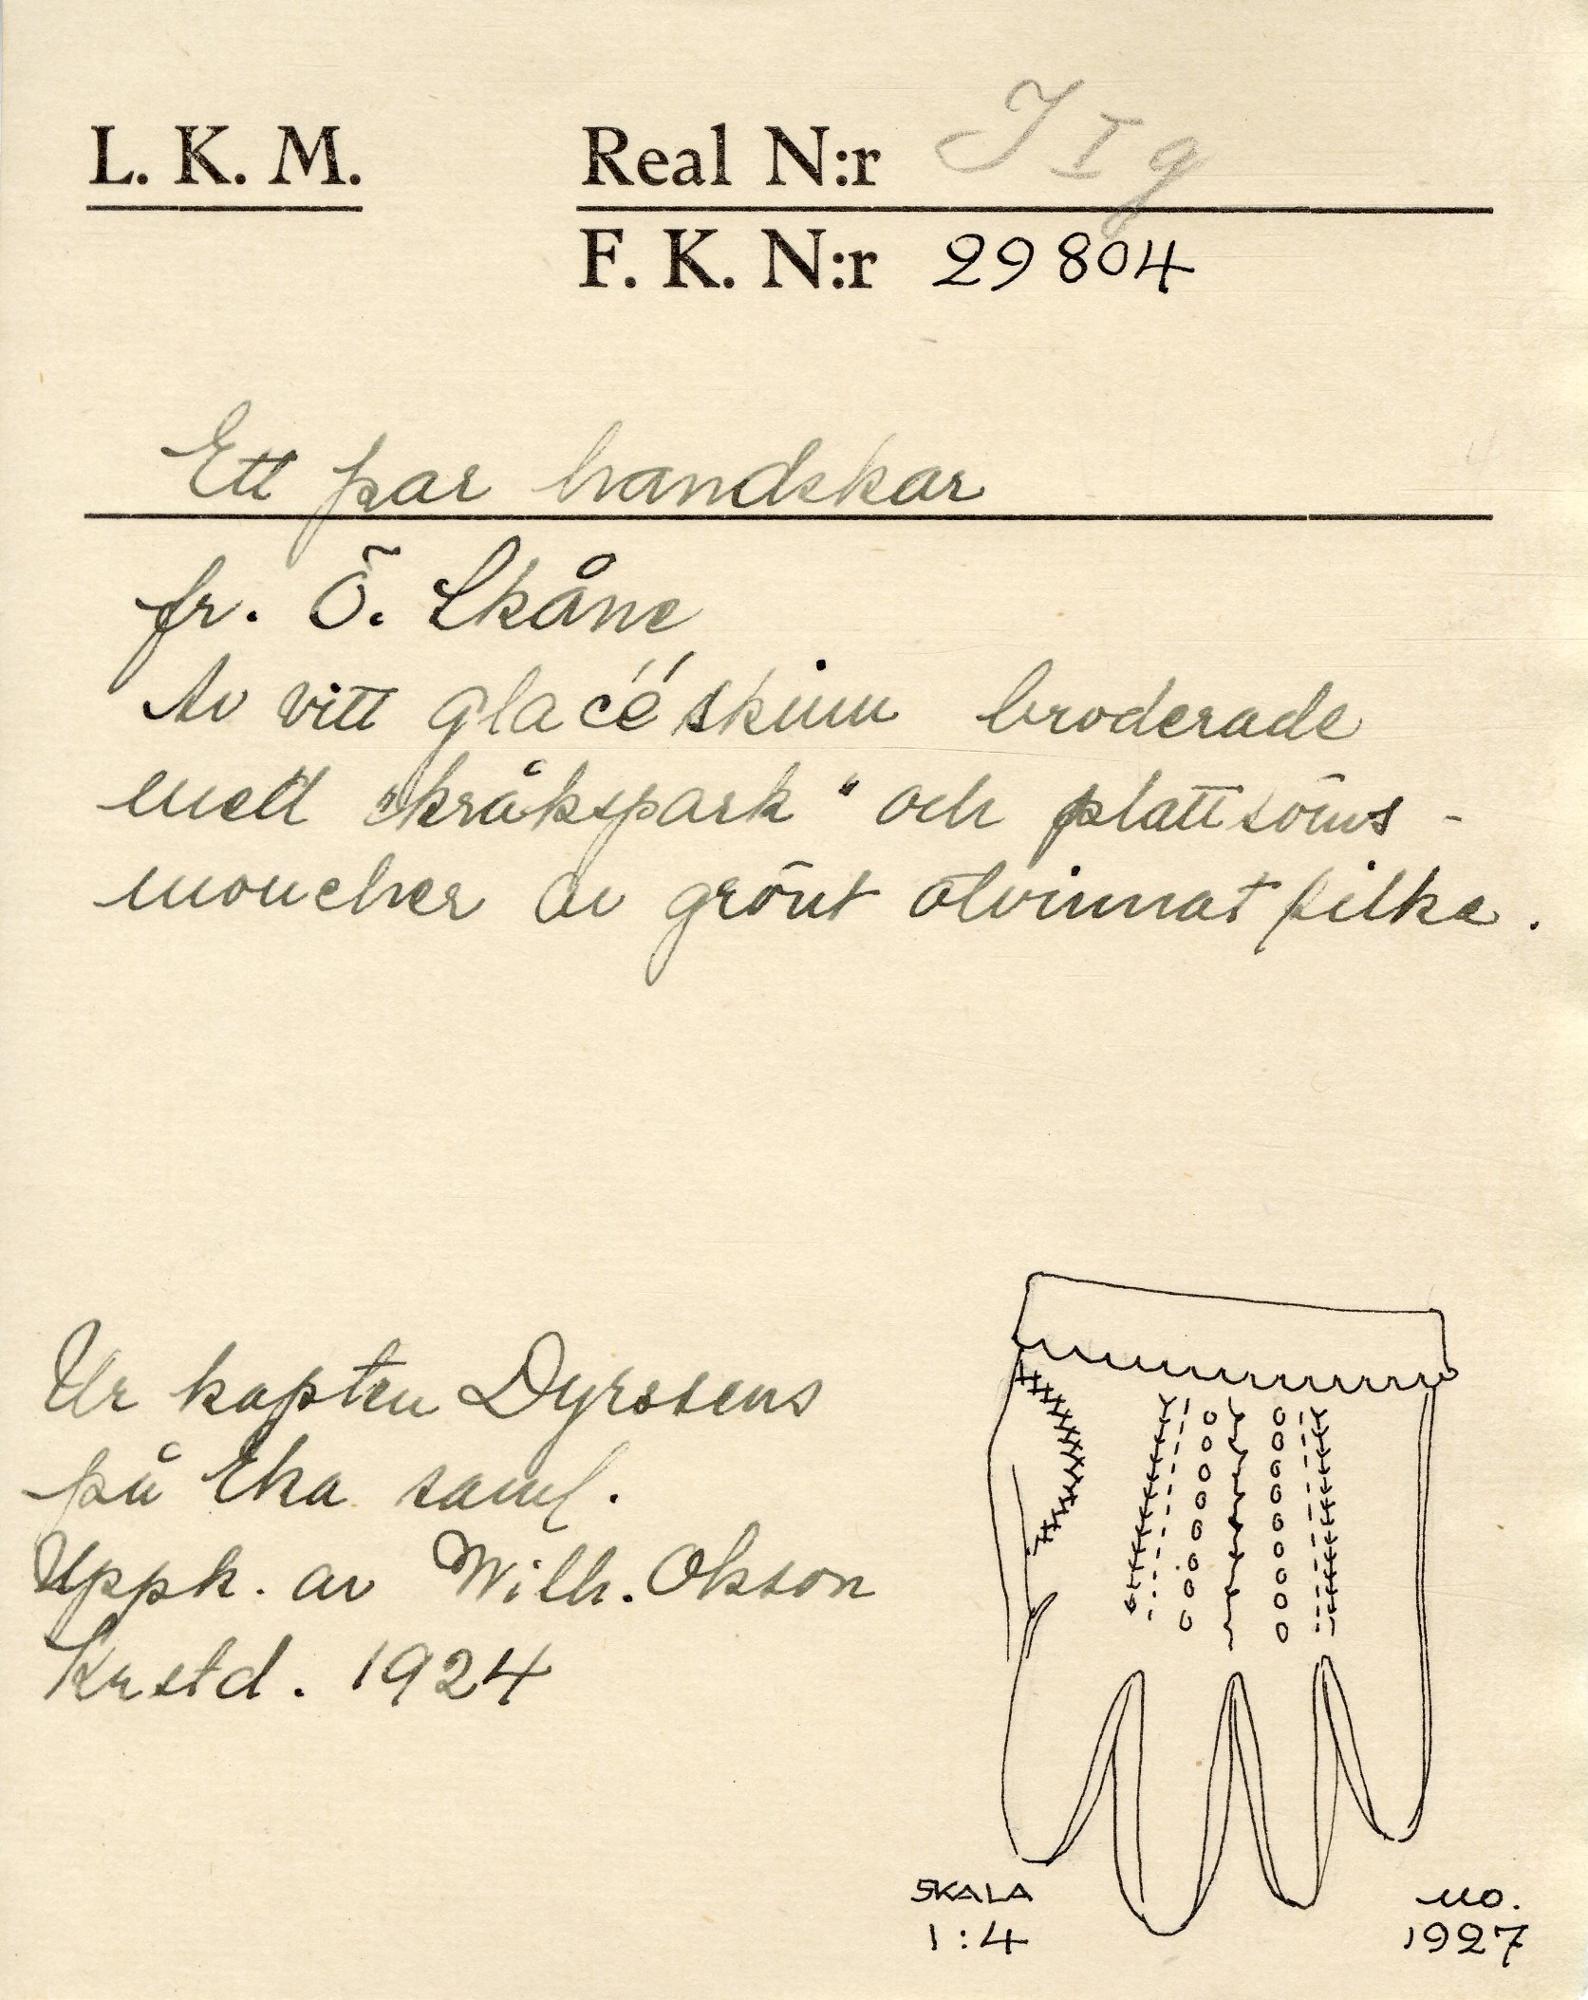 L. K. M.
Real N:r J I g
F. K. N:r 29804
Ett par handskar
fr. Ö. Skåne
Av vitt glacéskinn broderade
med "kråkspark" och plattsöms-
moucher av grönt otvinnat silke.
Ur kapten Dyrssens
på Eka saml.
Uppk. av Wilh. Olsson
Krstd. 1924
SKALA
1:4
MO.
1927